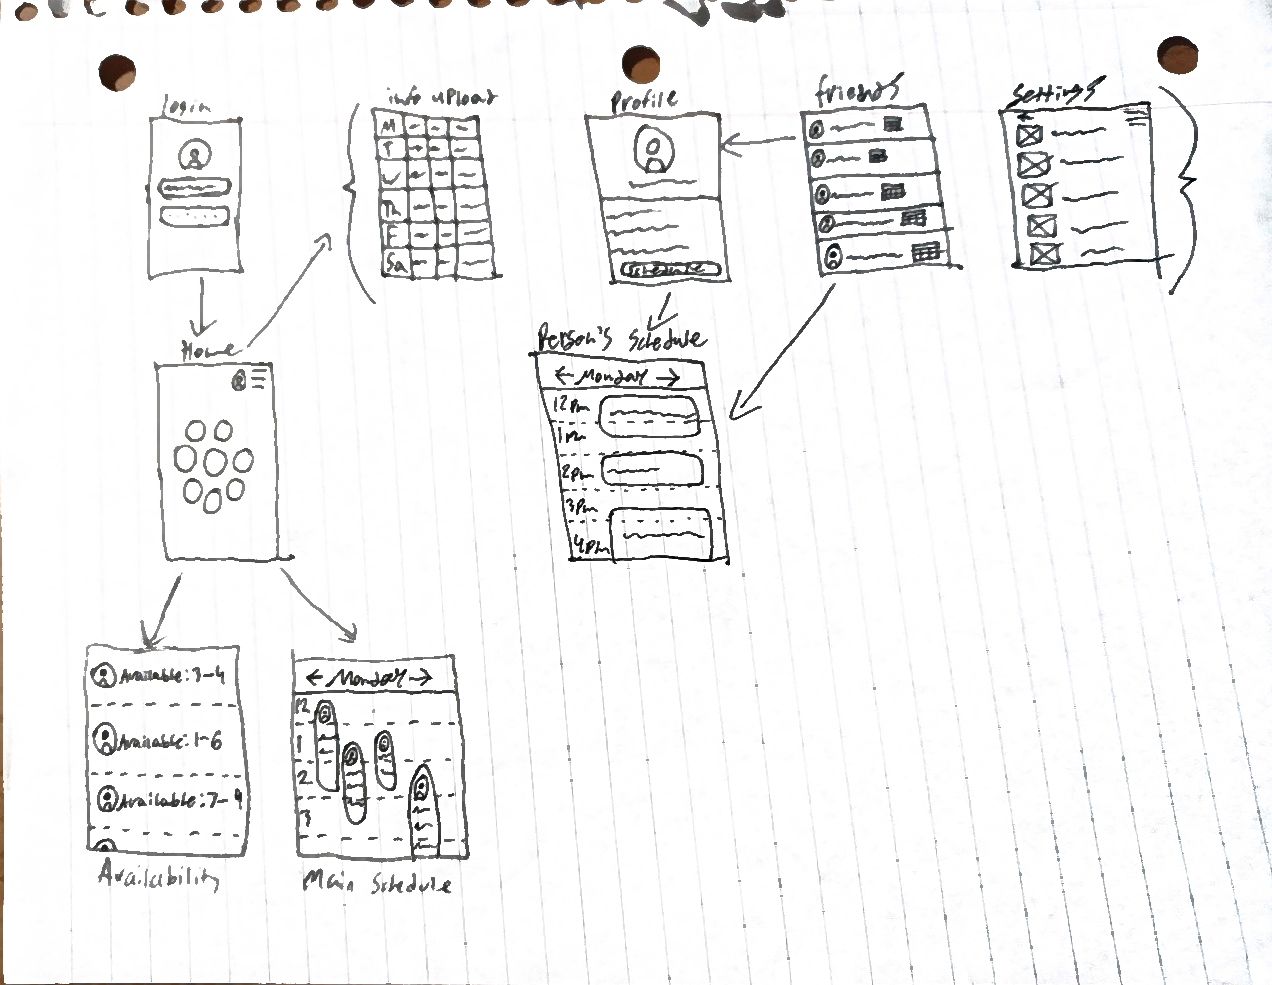 Login
info upload
M
T
W
Th
F
Sa
Profile
Schedule
friends
Settings
Home
Person's Schedule
← Monday →
12pm
1pm
2pm
3pm
4pm
Available: 3-4
Available: 1-6
Available: 7-9
Availability
← Monday →
12
1
2
3
Main Schedule